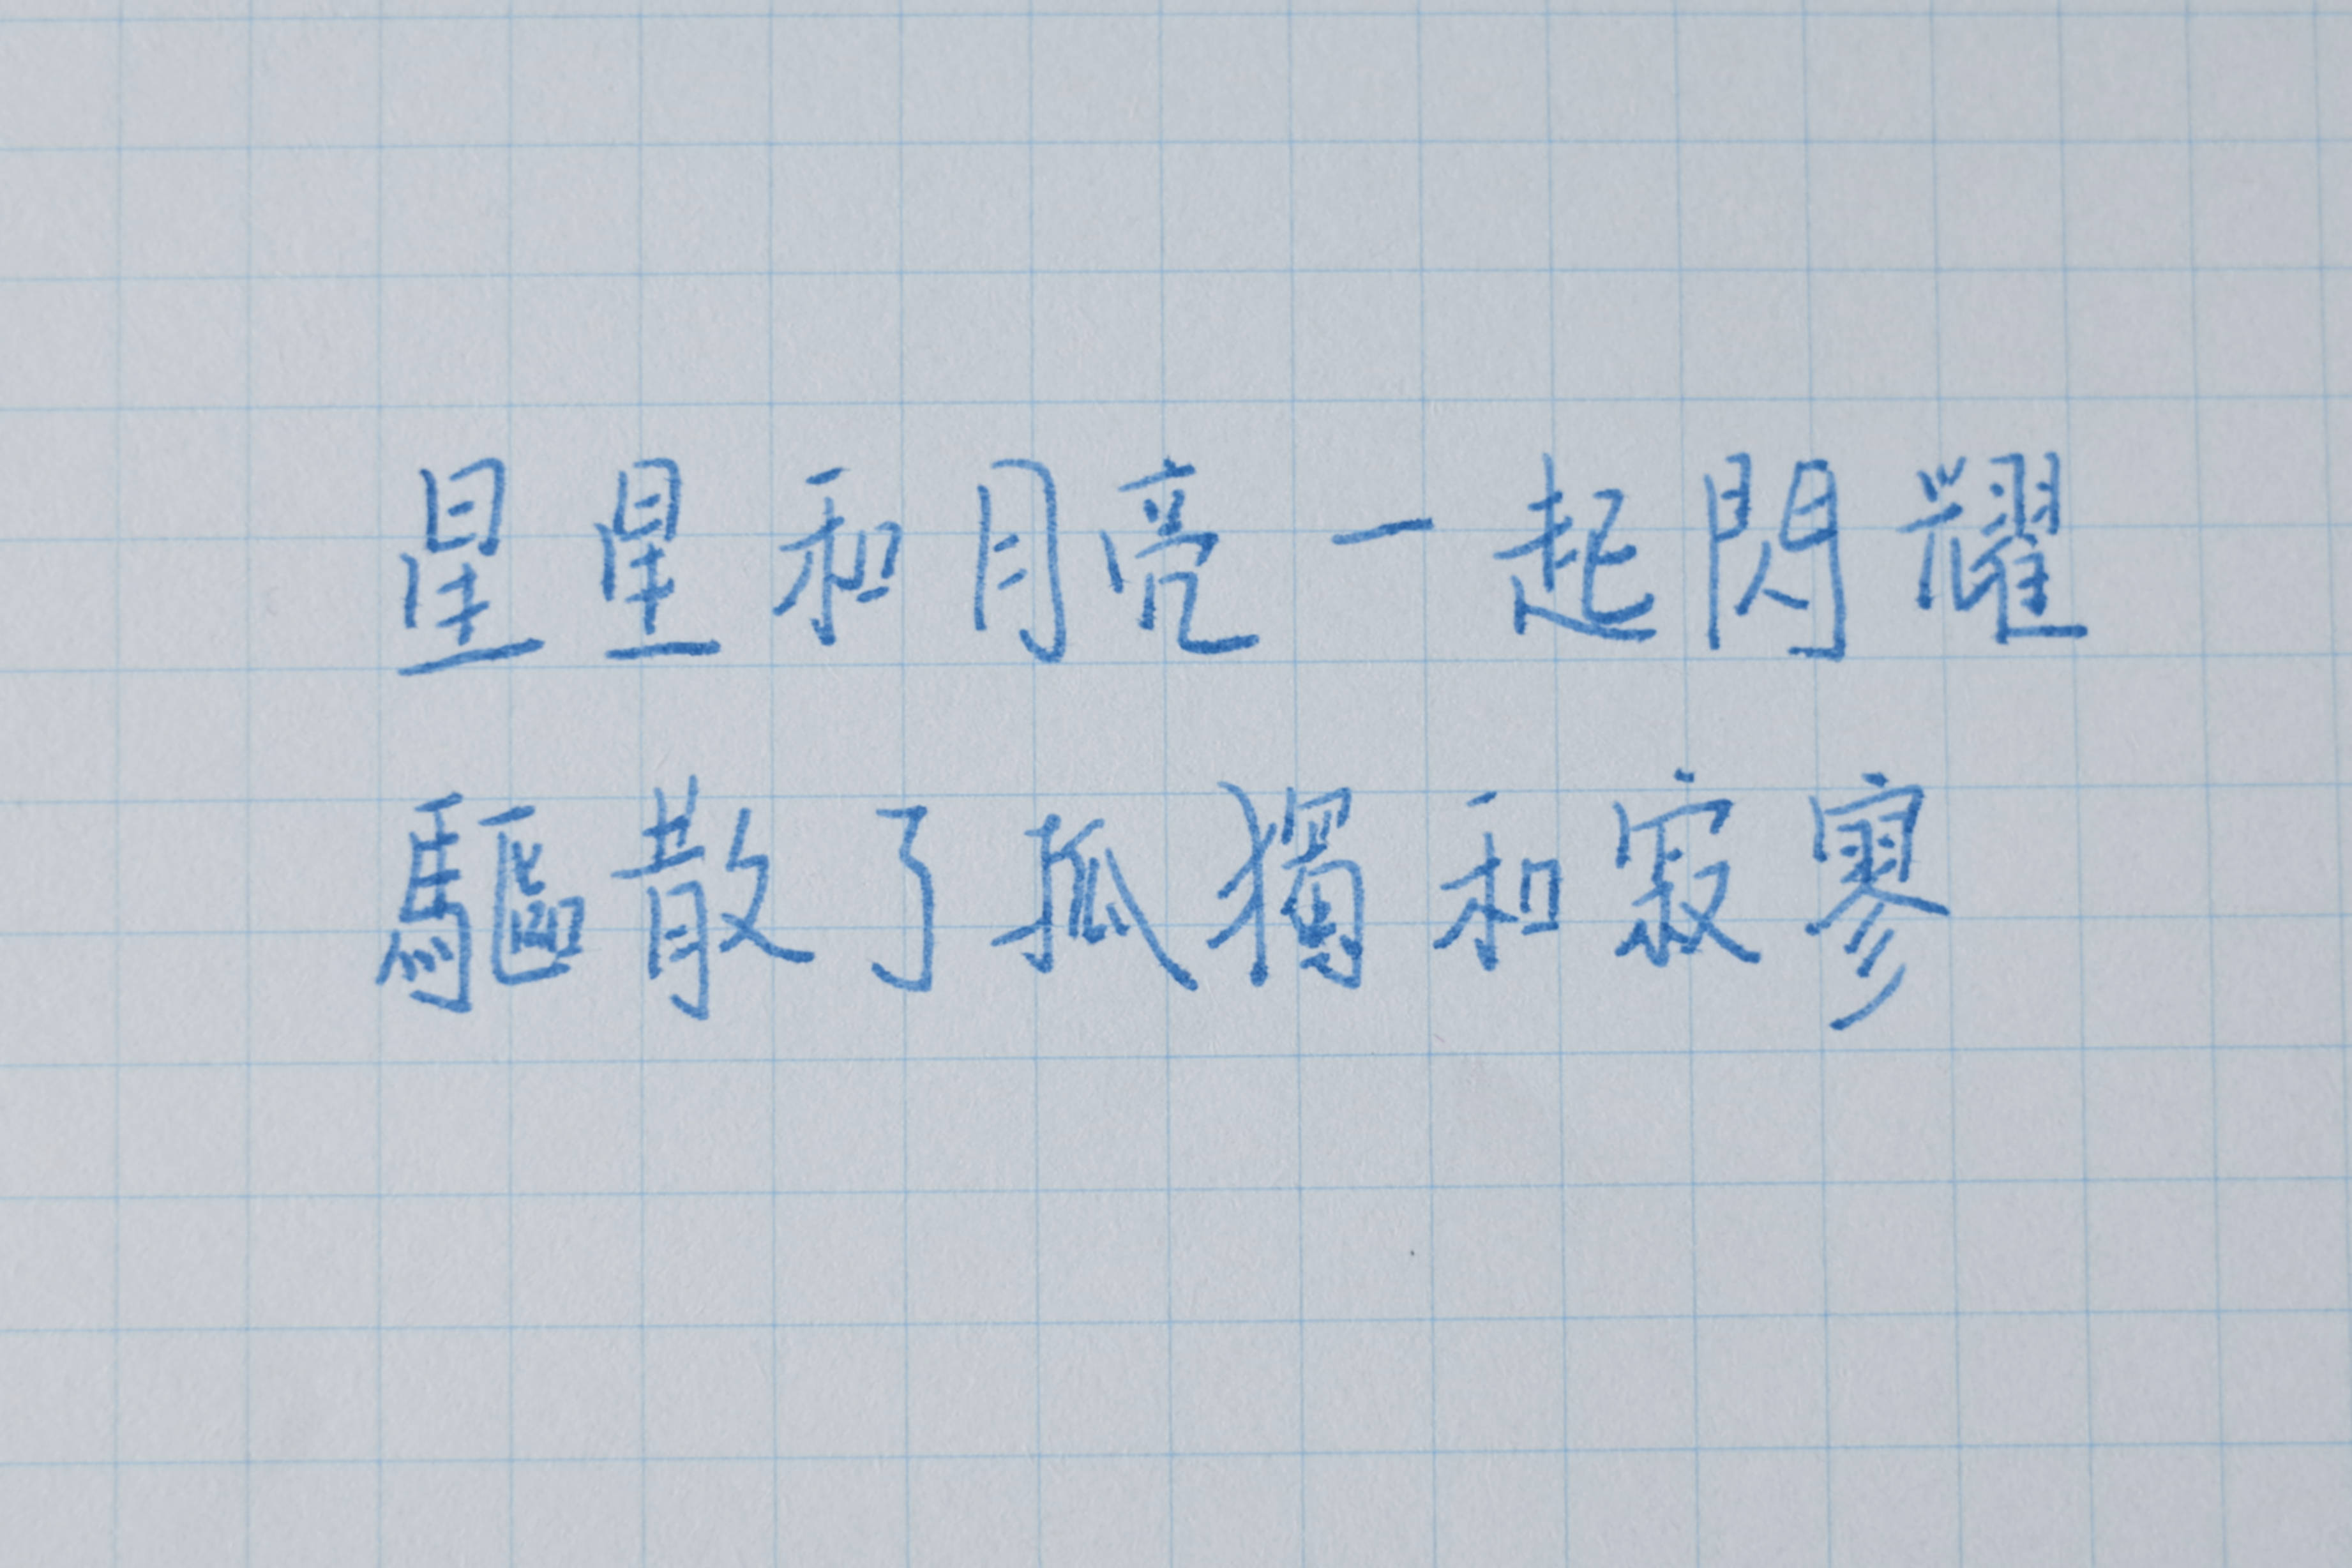 星星和月亮一起閃耀
驅散了孤獨和寂寥